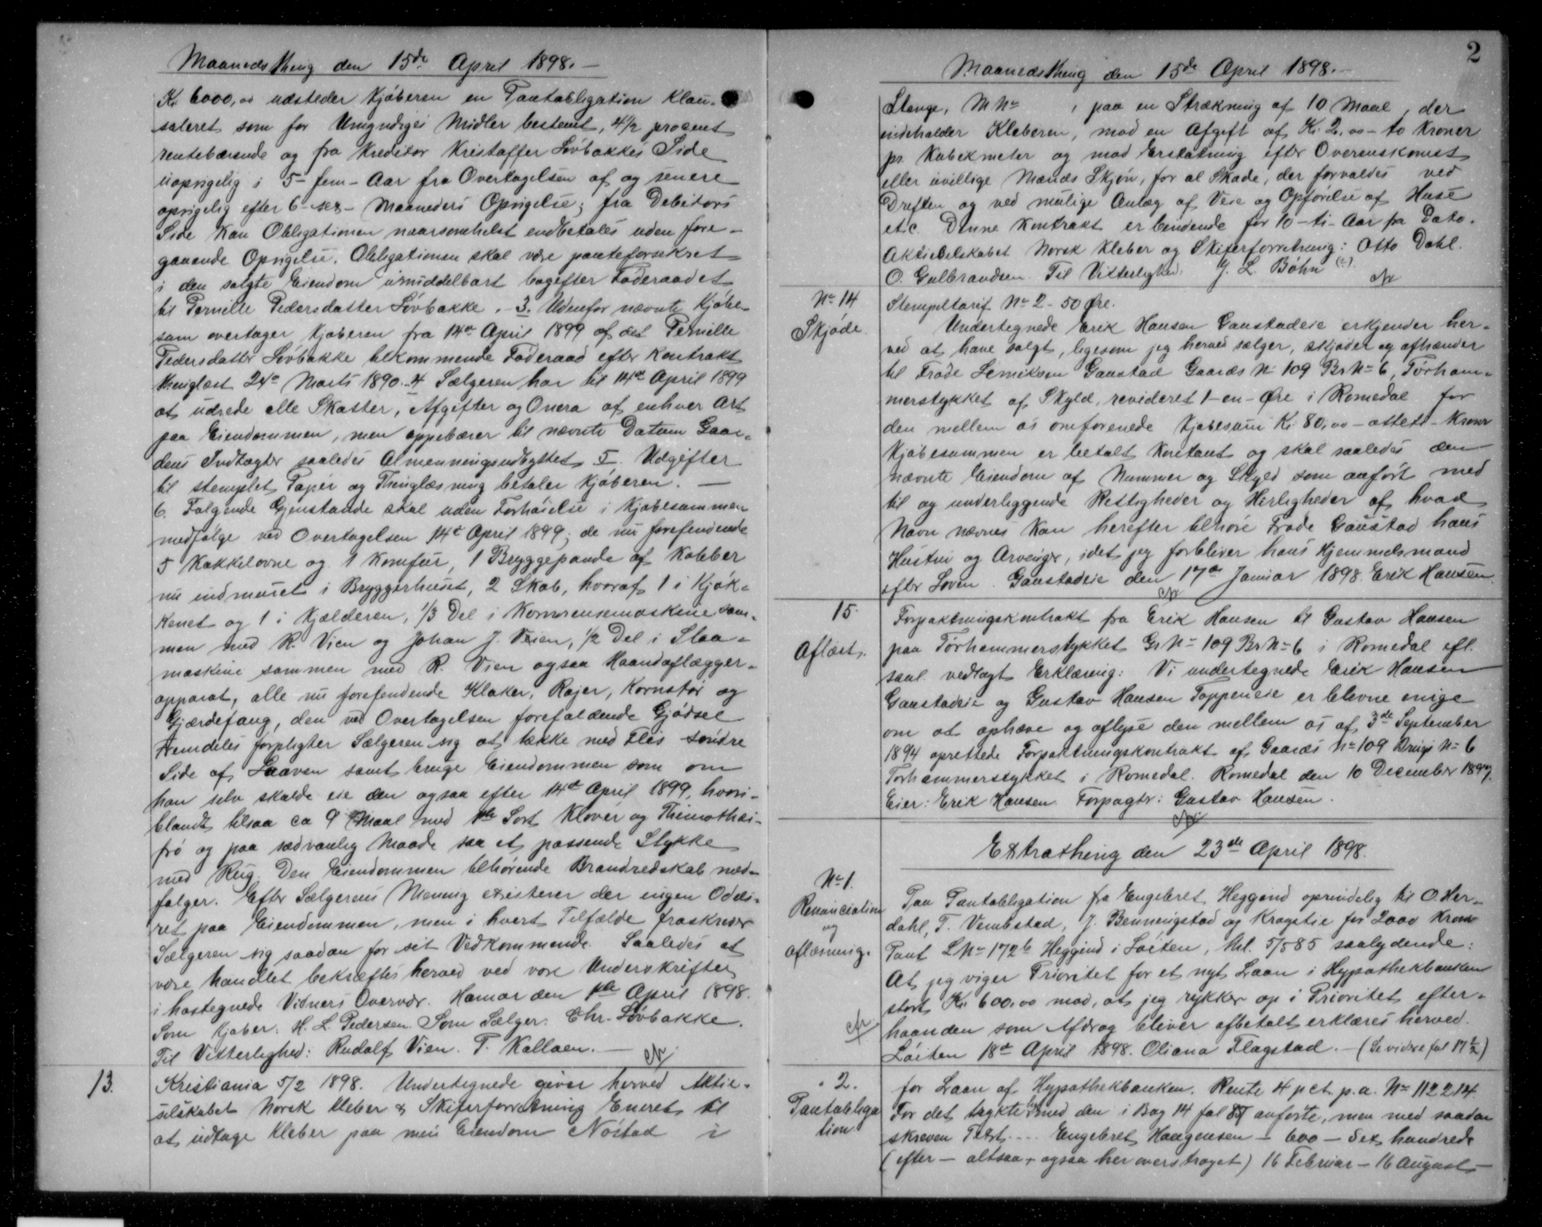 Maanedsthing den 15de April 1898.
Kr 6000,00 udsteder Kjøberen en Pantobligation klau-
suleret som for Umyndiges Midler bestemt, 4½ procent
rentebærende og fra Kreditor Kristoffer Løvbakkes Side
uopsigelig i 5 - fem - Aar fra Overtagelsen af og senere
opsigelig efter 6 - sex - Maaneders Opsigelse; fra Debitors
Side kan Obligationen naarsomhelst indbetales uden fore-
gaaende Opsigelse. Obligationen skal være panteforsikret
i den solgte Eiendom umiddelbart bagefter Føderaadet
til Pernille Pedersdatter Løvbakke. 3. Udenfor nævnte Kjøbe-
sum overtager Kjøberen fra 14de April 1899 af det Pernille
Pedersdatter Løvbakke tilkommende Føderaad efter Kontrakt
thinglæst 24de Marts 1890. 4 Sælgeren har til 14de April 1899
at udrede alle Skatter, Afgifter og Onera af enhver Art
paa Eiendommen, men oppebærer til nævnte Datum Gaar-
dens Indtægter saaledes Almenningsudbyttet 5. Udgifter
til stemplet Papir og Thinglæsning betaler Kjøberen. —
6. Følgende Gjenstande skal uden Forhøielse i Kjøbesummen
medfølge ved Overtagelsen 14de April 1899; de nu forefindende
5 Kakkelovne og 1 Komfur, 1 Bryggepande af Kobber
nu indmuret i Bryggerhuset, 2 Skab, hvoraf 1 i Kjøk-
kenet og 1 i Kjælderen, 1/3 Del i Kornrensemaskine sam-
men med R. Vien og Johan J. Veien, ½ Del i Slaa-
maskine sammen med R. Vien ogsaa Haandaflægger-
apparat, alle nu forefindende Klaker, Rajer, Kornstør og
Gjærdefang, den ved Overtagelsen forefaldende Gjødsel
Fremdeles forpligter Sælgeren sig at tække med Flis søndre
Side af Laaven samt bruge Eiendommen som om
han selv skulde eie den ogsaa efter 14de April 1899, hvori-
blandt tilsaa ca 9 Maal med 1ste Sort Kløver og Thimothei-
frø og paa sædvanlig Maade saa et passende Stykke
med Rug. Den Eiendommen tilhørende Brandredskab med-
følger. Efter Sælgerens Mening existerer der ingen Odels-
ret paa Eiendommen, men i hvert Tilfælde fraskriver
Sælgeren sig saadan for sit Vedkommende. Saaledes at
være handlet bekræftes herved ved vore Underskrifter
i hostegnede Vidners Overvær. Hamar den 1ste April 1898.
Som Kjøber: H. L. Pedersen. Som Sælger: Chr. Løvbakke.
Til Vitterlighed: Rudolf Vien. T. Kallaen. —
13. Kristiania 5/2 1898. Undertegnede giver herved Aktie-
selskabet Norsk Kleber & Skiferforretning Eneret til
at udtage Kleber paa min Eiendom Nøstad i
2
Maanedsthing den 15de April 1898.
Stange, M No , paa en Strækning af 10 Maal, der
indeholder Kleberen, mod en Afgift af Kr. 2,00 - to Kroner
pr. Kubikmeter og mod Erstatning efter Overenskomst
eller uvillige Mænds Skjøn, for al Skade, der forvoldes ved
Driften og ved mulige Anlæg af Veie og Opførelse af Huse
etc. Denne Kontrakt er bindende for 10 - ti - Aar fra Dato.
Aktieselskabet Norsk Kleber og Skiferforretning: Otto Dahl.
O. Gulbrandsen. Til Vitterlighed: J. L. Bøhn
No 14
Skjøde.
Stempeltarif No 2 - 50 Øre.
Undertegnede Erik Hansen Gaustadeie erkjender her-
ved at have solgt, ligesom jeg herved sælger, skjøder og afhænder
til Frode Gaustad Gaards No 109 Br No 6, Tørham-
merstykket af Skyld, revideret 1 - en - Øre i Romedal for
den mellem os omforenede Kjøbesum Kr 80,00 - otteti - Kroner
Kjøbesummen er betalt Kontant og skal saaledes den
nævnte Eiendom af Nummer og Skyld som anført med
til og underliggende Rettigheder og Herligheder af hvad
Navn nævnes kan herefter tilhøre Frode Gaustad hans
Hustru og Arvinger, idet jeg forbliver hans Hjemmelsmand
efter Loven. Gaustadeie den 17de Januar 1898. Erik Hansen.
15.
Aflæst.
Forpaktningskontrakt fra Erik Hansen til Gustav Hansen
paa Tørhammerstykket Gr No 109 Br No 6 i Romedal efl.
saal. vedtagt Erklæring: Vi undertegnede Erik Hansen
Gaustadeie og Gustav Hansen Toppeneie er blevne enige
om at ophæve og aflyse den mellem os af 3de September
1894 oprettede Forpaktningskontrakt af Gaards No 109 Brugs No 6
Tørhammerstykket i Romedal. Romedal den 10 December 1897.
Eier: Erik Hansen. Forpagter: Gustav Hansen.
Extrathing den 23de April 1898.
No 1.
Renunciation
og
aflæsning.
Paa Pantobligation fra Engebret Heggend oprindelig til O. Hor-
dahl, T. Vembstad, J. Benningstad og Kragstie for 2000 Kroner
Pant L No 172b Heggend i Løiten, thl. 5/5 85 saalydende:
At jeg viger Prioritet for et nyt Laan i Hypothekbanken
stort Kr. 600,00 mod, at jeg rykker op i Prioritet efter-
haanden som Afdrag bliver afbetalt erklæres herved.
Løiten 18de April 1898. Oliana Flagstad. — (Se videre fol 17½)
" 2.
Pantobliga
tion
for Laan af Hypothekbanken. Rente 4 pct. p.a. No 112214
For det trykte med den i Bog 14 fol 87 anførte, men med saadan
skreven Text.... Engebret Haagensen — 600 — Sex hundrede
(efter — altsaa, ogsaa her overstrøget) 16 Februar - 16 August —